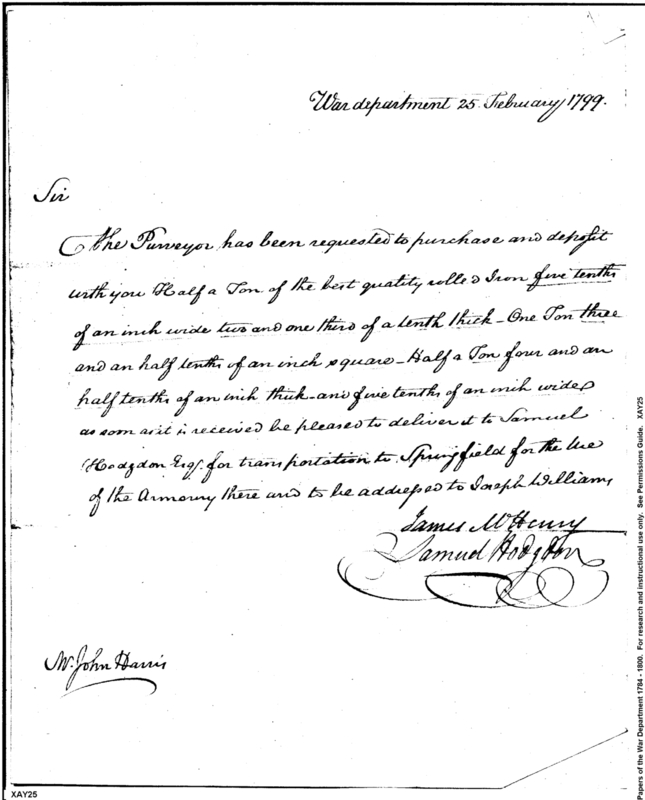 War department 25 February 1799.
Sir
The Purveyor has been requested to purchase and deposit
with you Half a Ton of the best quality rolled Iron five tenths
of an inch wide two and one third of a tenth thick - One Ton three
and an half tenths of an inch square - Half a Ton four and an
half tenths of an inch thick - and five tenths of an inch wide,
as soon as it is received be pleased to deliver it to Samuel
Hodgdon Esqr. for transportation to Springfield for the Use
of the Armoury there and to be addressed to Joseph Williams
James McHenry
Samuel Hodgdon
Mr. John Harris
XAY25
Papers of the War Department 1784 - 1800. For research and instructional use only. See Permissions Guide. XAY25